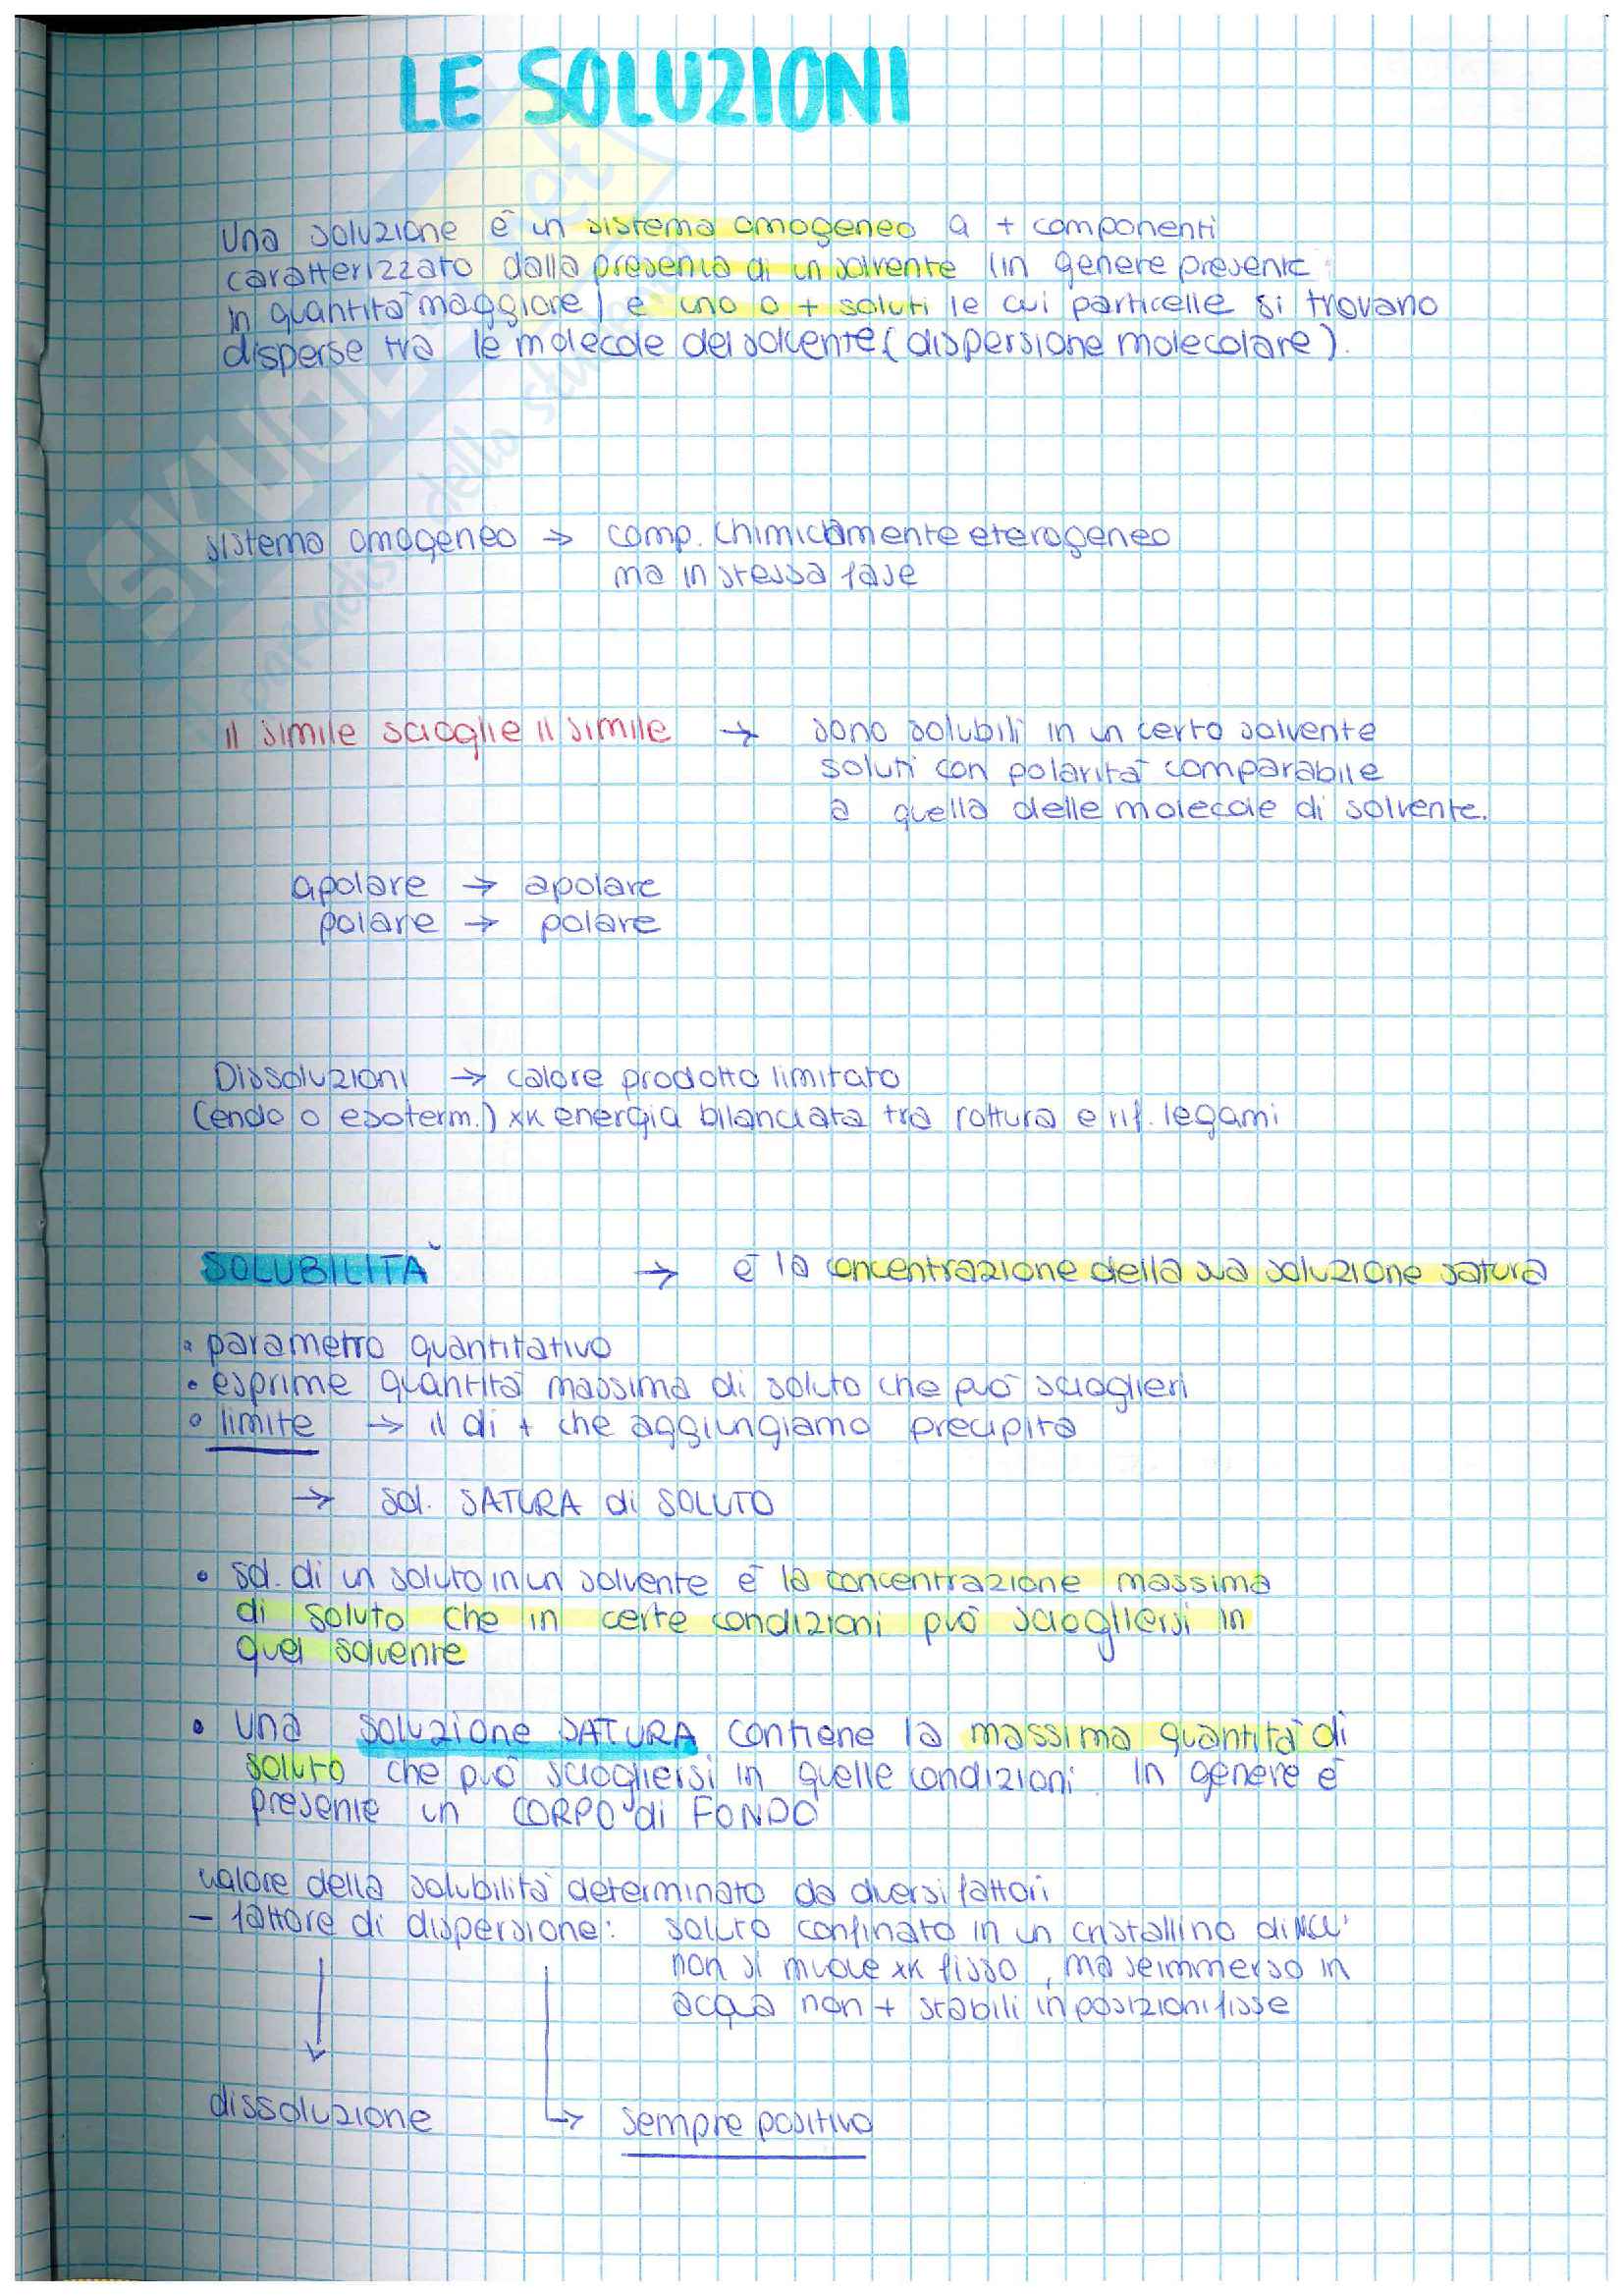 LE SOLUZIONI
Una soluzione è un sistema omogeneo a + componenti
caratterizzato dalla presenza di un solvente (in genere presente
in quantità maggiore) e uno o + soluti le cui particelle si trovano
disperse tra le molecole del solvente (dispersione molecolare).
sistema omogeneo → comp. chimicamente eterogeneo
ma in stessa fase
il simile scioglie il simile → sono solubili in un certo solvente
soluti con polarità comparabile
a quella delle molecole di solvente.
apolare → apolare
polare → polare
Dissoluzioni → calore prodotto limitato
(endo o esoterm.) xk energia bilanciata tra rottura e rif. legami
SOLUBILITÀ → è la concentrazione della sua soluzione satura
• parametro quantitativo
• esprime quantità massima di soluto che può sciogliersi
• limite → il di + che aggiungiamo precipita
→ sol. SATURA di SOLUTO
• sol. di un soluto in un solvente è la concentrazione massima
di soluto che in certe condizioni può sciogliersi in
quel solvente
• Una soluzione SATURA contiene la massima quantità di
soluto che può sciogliersi in quelle condizioni. In genere è
presente un CORPO di FONDO
valore della solubilità determinato da diversi fattori
– fattore di dispersione: soluto confinato in un cristallino di NaCl
non si muove xk fisso, ma se immerso in
acqua non + stabili in posizioni fisse
dissoluzione → sempre positivo
SKUOLA.net
il paradiso dello studente